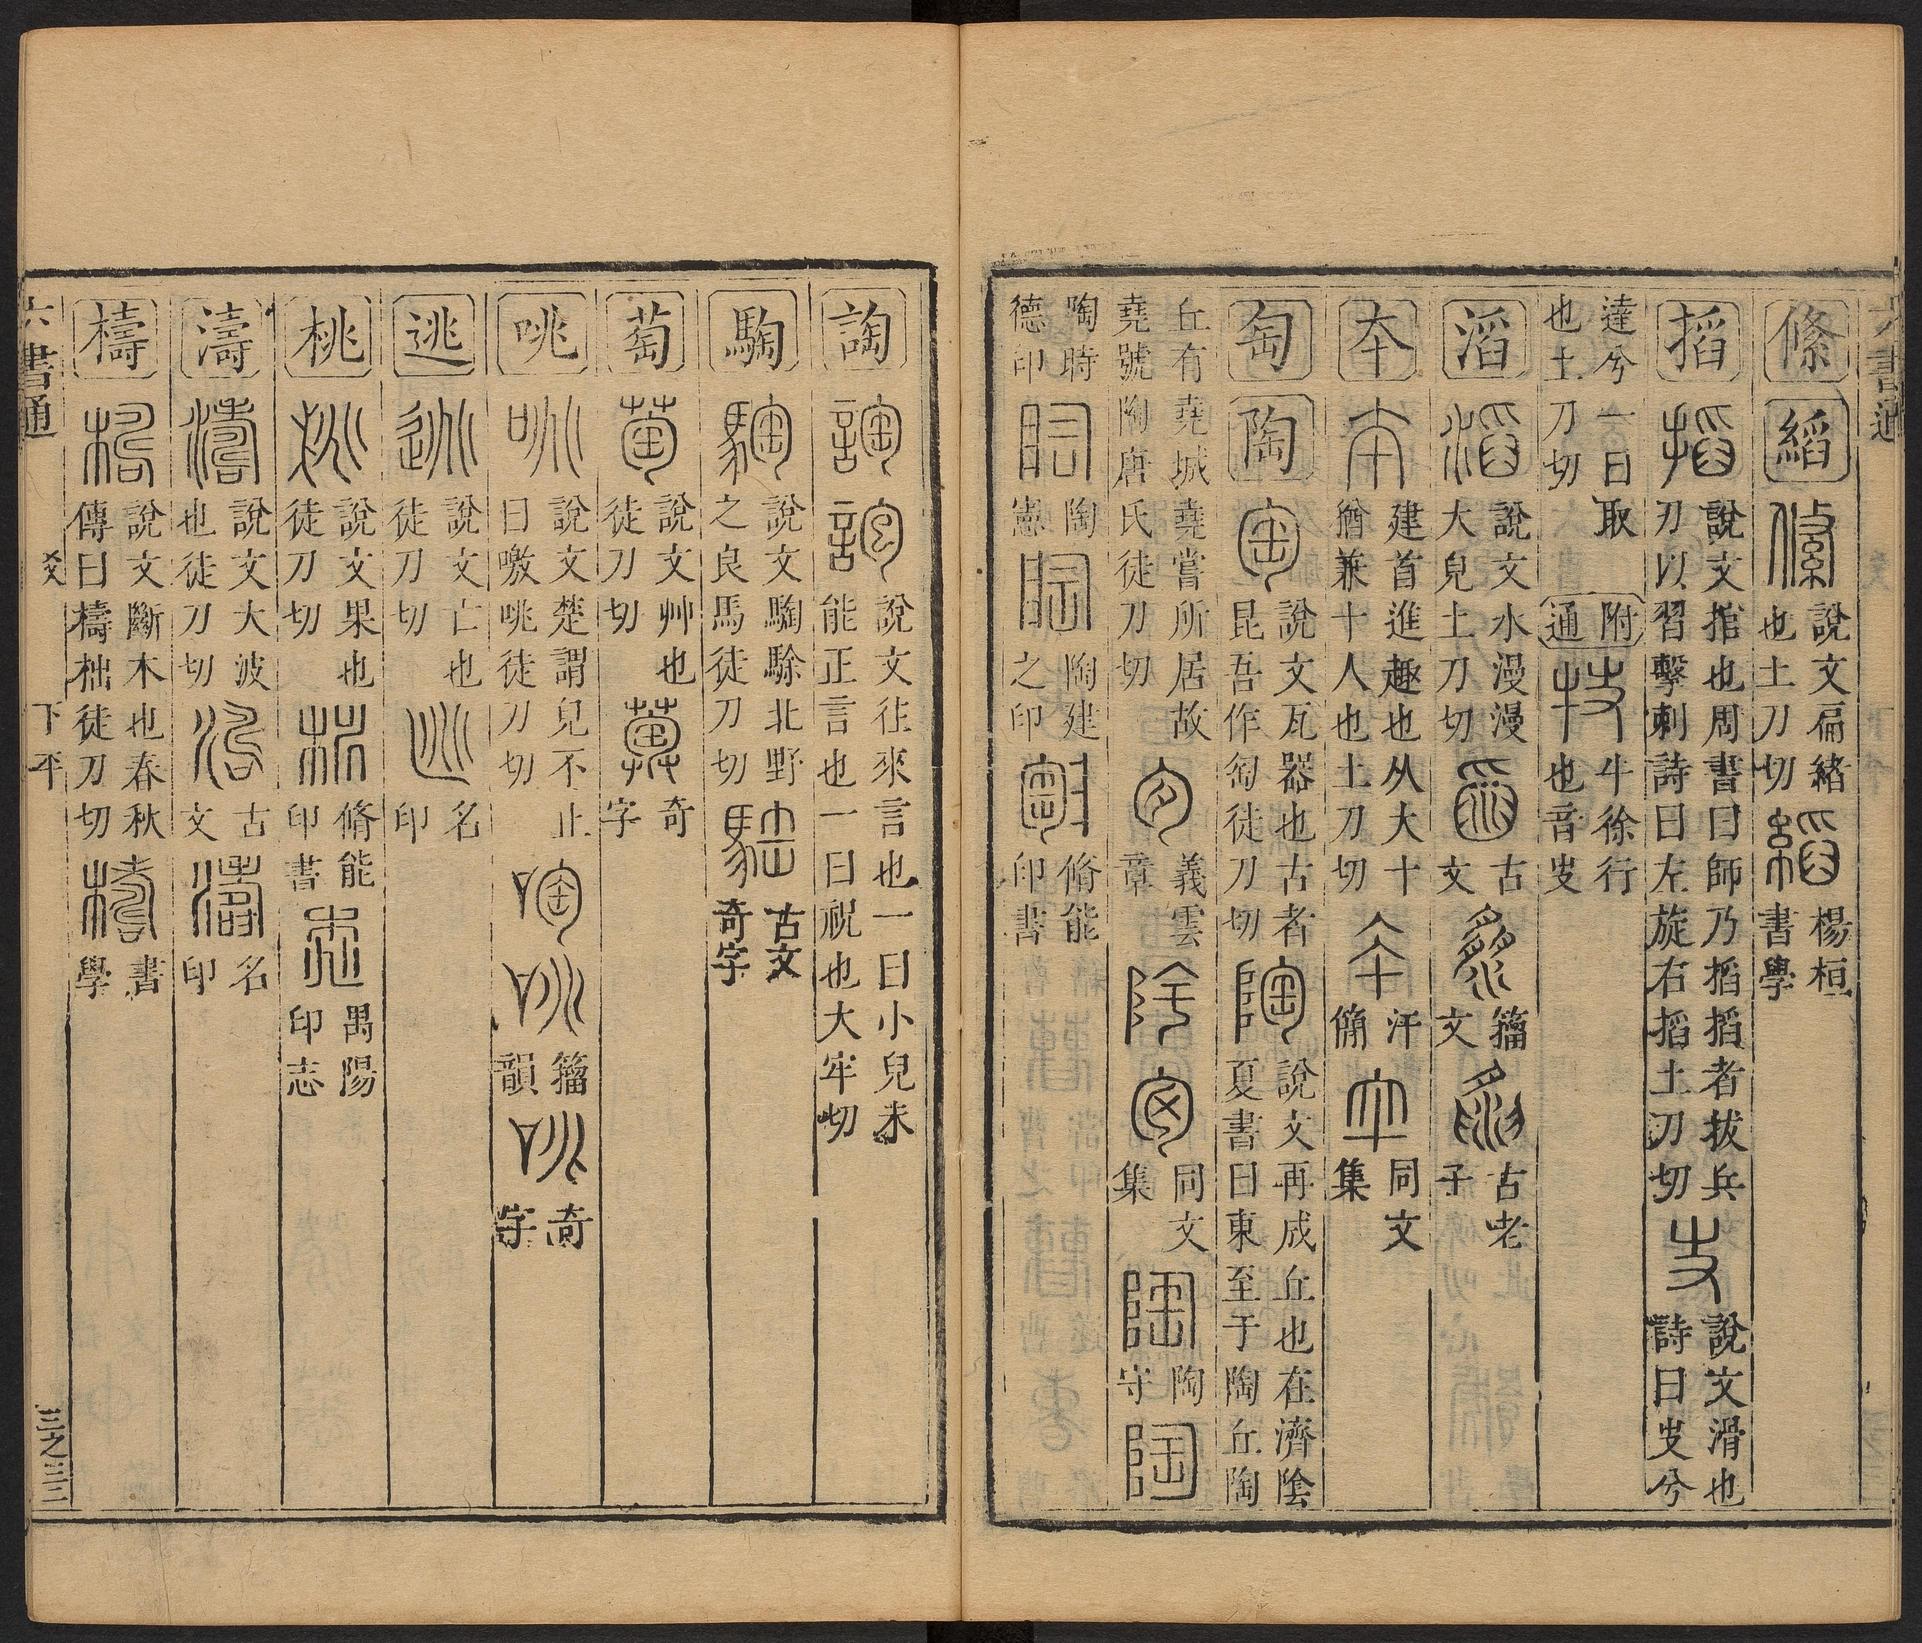 六書通
絛縚 說文扁緒也土刀切 楊桓書學
搯 說文捾也周書曰師乃搯搯者拔兵刃以習擊刺詩曰左旋右搯土刀切 說文滑也詩曰𡴂兮
達兮一曰取也土刀切 附通 牛徐行也音𡴂
滔 說文水漫漫大皃土刀切 古文 籀文 古老子
夲 建首進趣也从大十猶兼十人也土刀切 汗簡 同文集
匋陶 說文瓦器也古者昆吾作匋徒刀切 說文再成丘也在濟陰夏書曰東至于陶丘陶
丘有堯城堯嘗所居故堯號陶唐氏徒刀切 義雲章 同文集 陶守
陶時德印 陶憲 陶建之印 脩能印書
詾 說文往來言也一曰小兒未能正言也一曰祝也大牢切
騊 說文騊駼北野之良馬徒刀切 古文奇字
萄 說文艸也徒刀切 奇字
咷 說文楚謂兒不止曰噭咷徒刀切 籀韻 奇字
逃 說文亡也徒刀切 名印
桃 說文果也徒刀切 脩能印書 禺陽印志
濤 說文大波也徒刀切 古文 名印
檮 說文斷木也春秋傳曰檮柮徒刀切 書學
六書通 爻 下平 三之三三